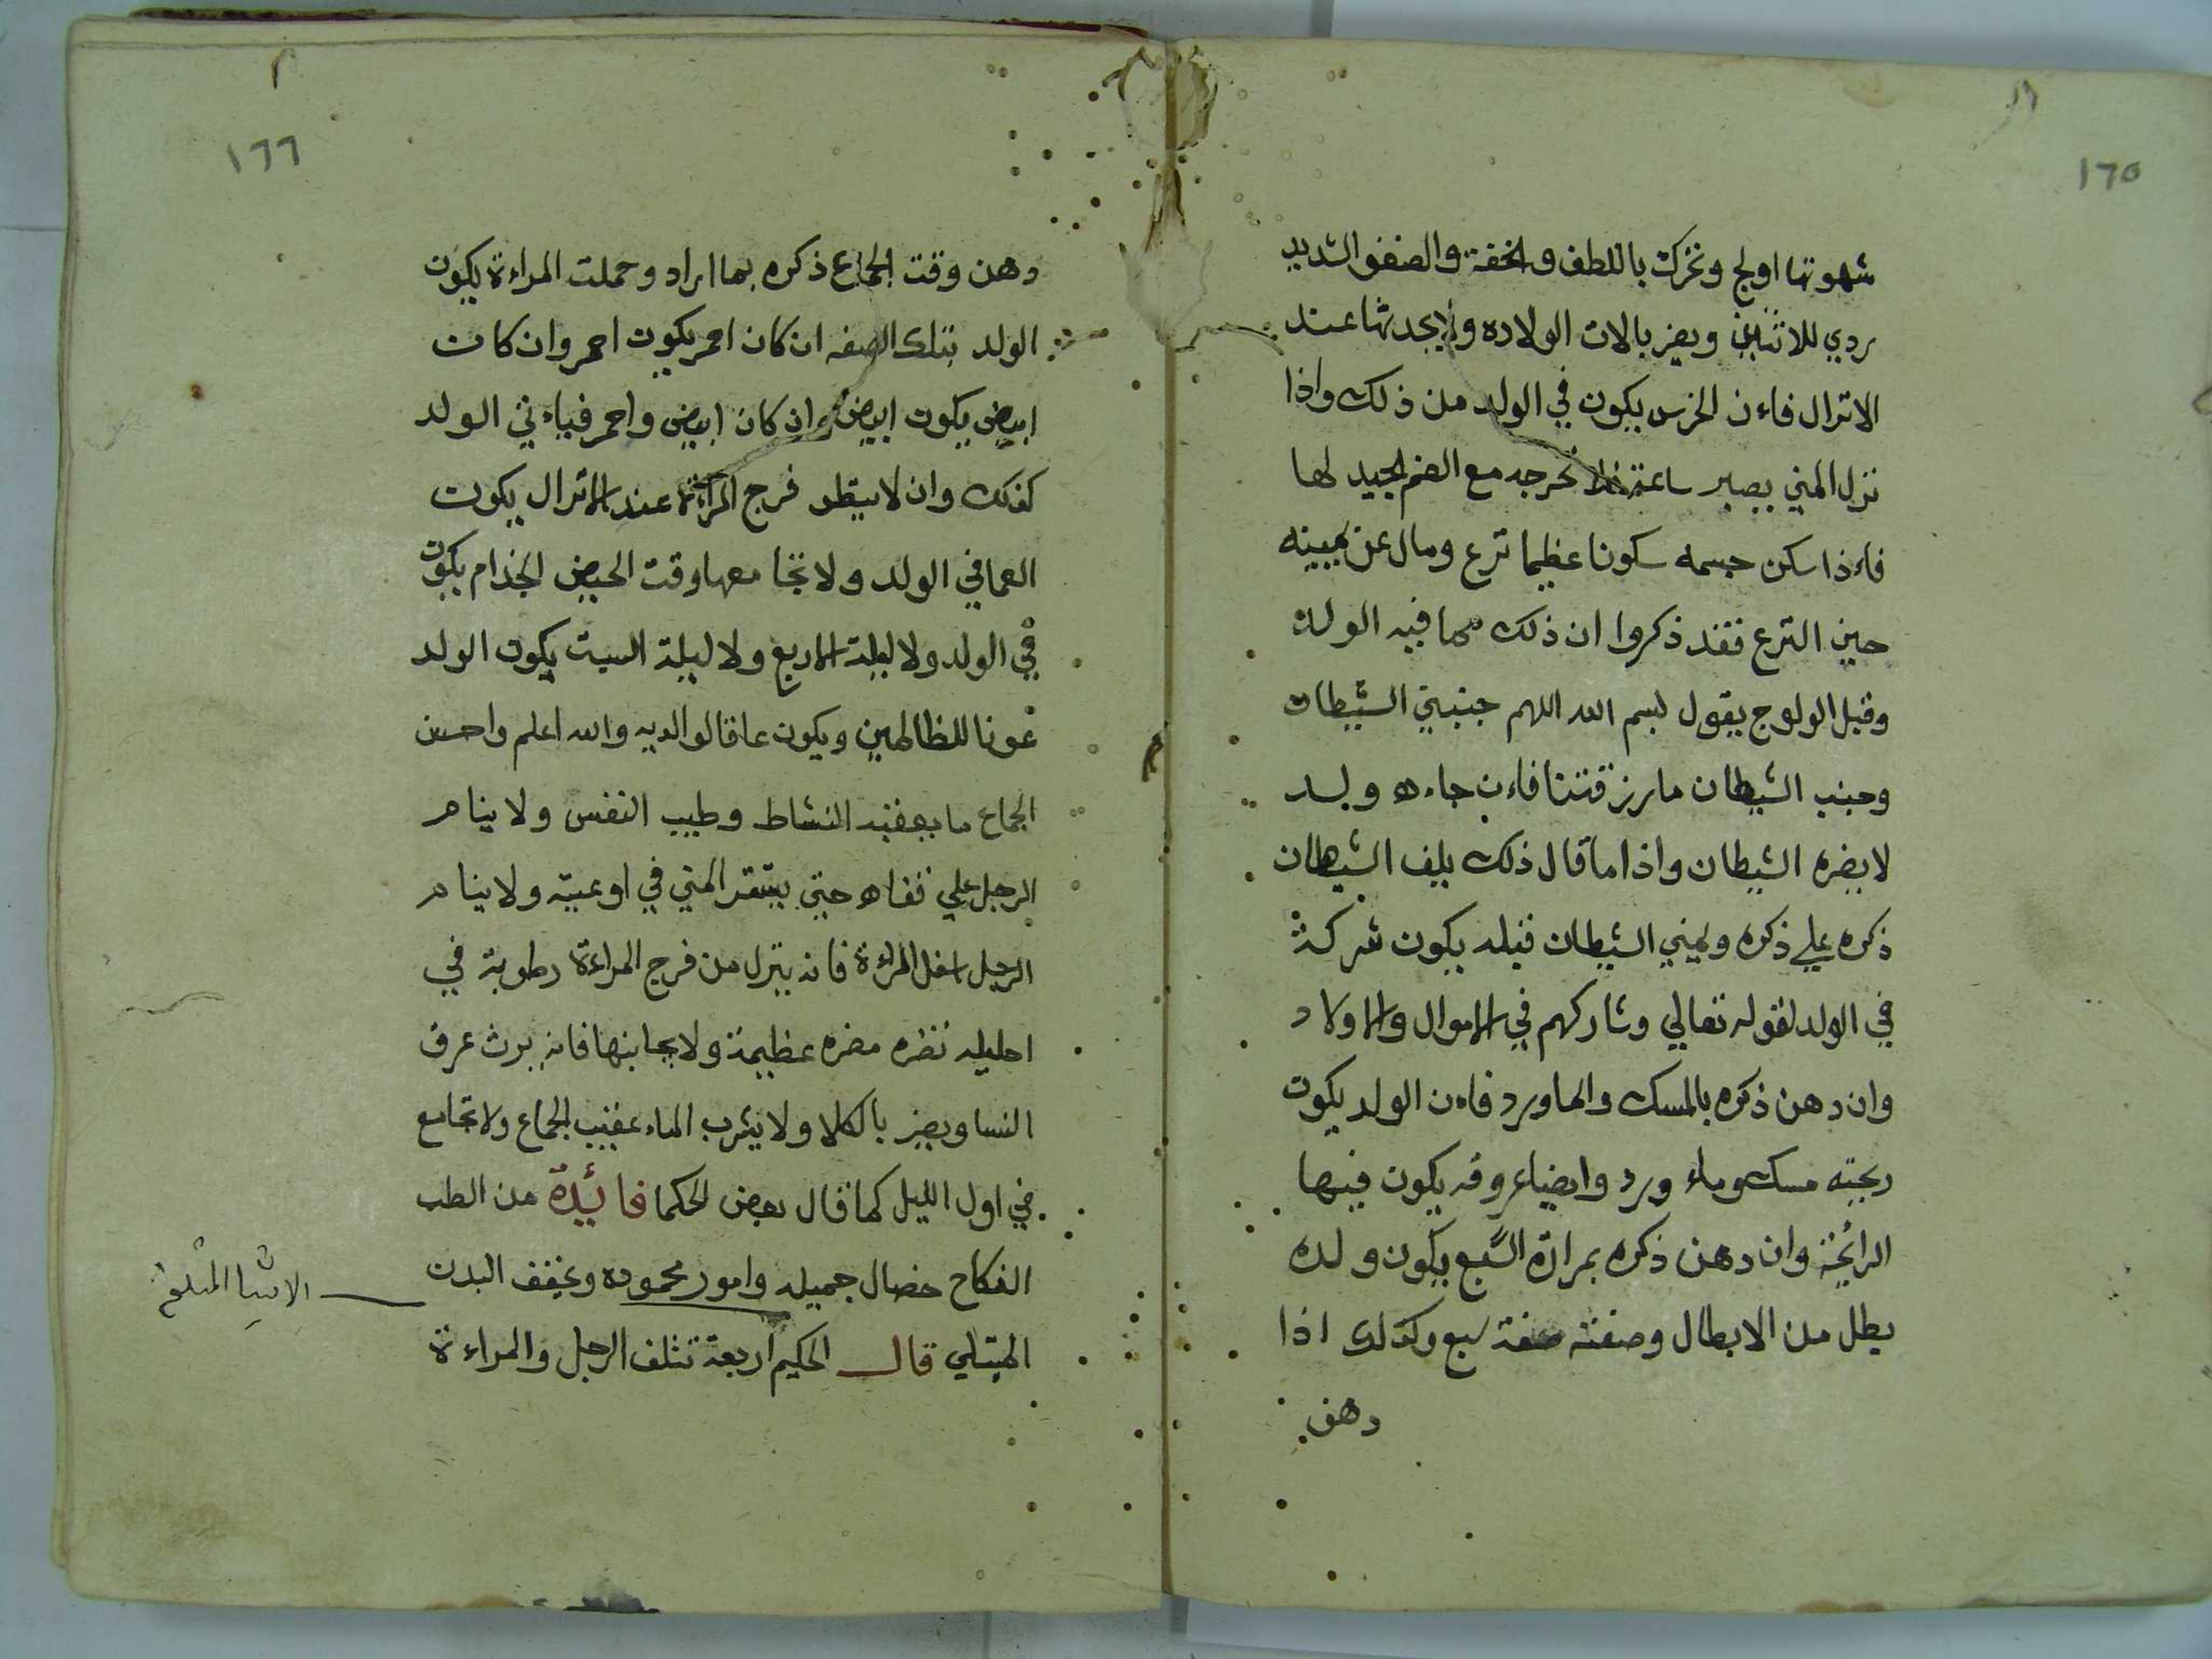 ١٦٥
شهوتها اولج وتحركت باللطف والخفة والصفق الشديد
ردي للاثنين ويضر بالات الولاده ولا يحدثها عند
الانزال فاءن الخرس يكون في الولد من ذلك واذا
نزل المني يصبر ساعة فلا تخرجه مع الضم الجيد لها
فاءذا سكن جسمه سكونا عظيما نزع ومال عن يمينه
حين النزع فقد ذكروا ان ذلك مما فيه الولد
وقبل الولوج يقول بسم الله اللهم جنبني الشيطان
وجنب الشيطان مارزقتنا فاءن جاءه ولد
لا يضره الشيطان واذا ما قال ذلك يلف الشيطان
ذكره علي ذكره ويمني الشيطان قبله يكون شركة
في الولد لقوله تعالي وشاركهم في الاموال والاولاد
وان دهن ذكره بالمسك والماورد فاءن الولد يكون
ريحته مسك وماء ورد وايضا عروقه يكون فيها
الرائحة وان دهن ذكره بمرارة السبع يكون ولده
بطل من الابطال وصفته صفة سبع وكذلك اذا
دهن
١٦٦
دهن وقت الجماع ذكره بما اراد وحملت المراءة يكون
الولد بتلك الصفه ان كان احمر يكون احمر وان كان
ابيض يكون ابيض وان كان ابيض واحمر فياءتي الولد
كذلك وان لا ينظر فرج المراءة عند الانزال يكون
العما في الولد ولا تجامعها وقت الحيض الجذام يكون
في الولد ولا ليلة الاربع ولا ليلة السبت يكون الولد
عونا للظالمين ويكون عاقا لوالديه والله اعلم واحسن
الجماع ما يعقبه النشاط وطيب النفس ولا ينام
الرجل علي قفاه حتي يستقر المني في اوعيته ولا ينام
الرجل اسفل المراءة فانه ينزل من فرج المراءة رطوبة في
احليله تضره مضره عظيمة ولا بجانبها فانه يرث عرق
النسا ويضر بالكلا ولا يشرب الماء عقيب الجماع ولا تجامع
في اول الليل كما قال بعض الحكما فائدة من الطب
النكاح خصال جميله وامور محموده ويخفف البدن
الممتلي قال الحكيم اربعة تتلف الرجل والمراءة
الاشيا المتلفه